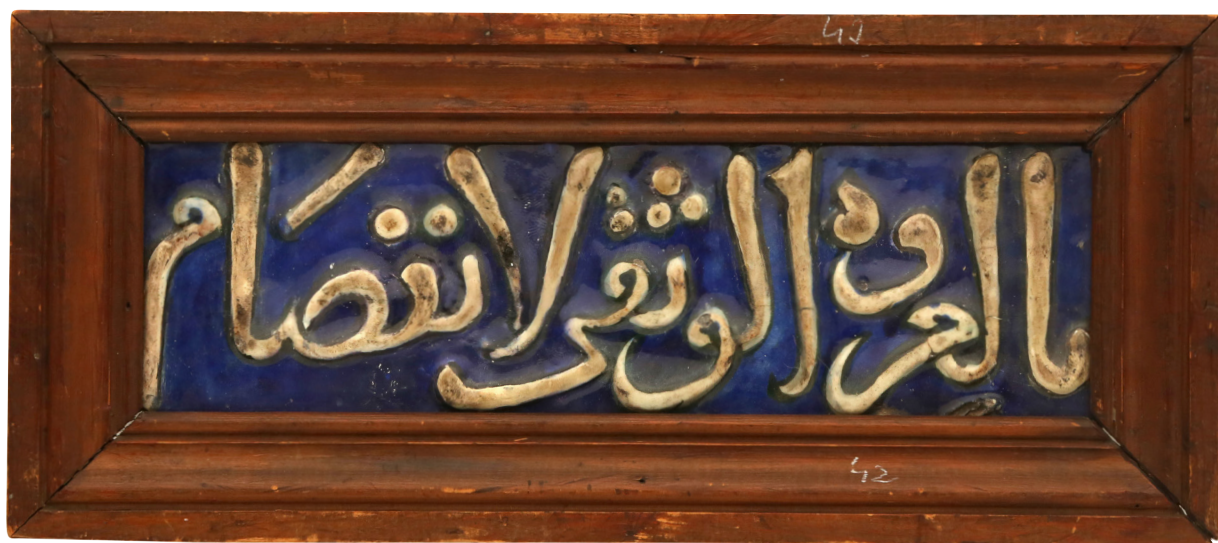 42
بالعروة الوثقى لا نفصام
42